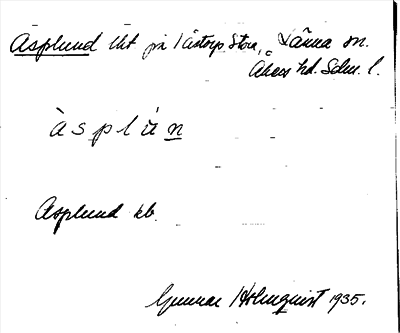 Åsplund lht på Kåstorp Stora, Länna sn.
Åkers hd. Sdm. l.
àsplùn
Asplund kb.
Gunnar Holmquist 1935.